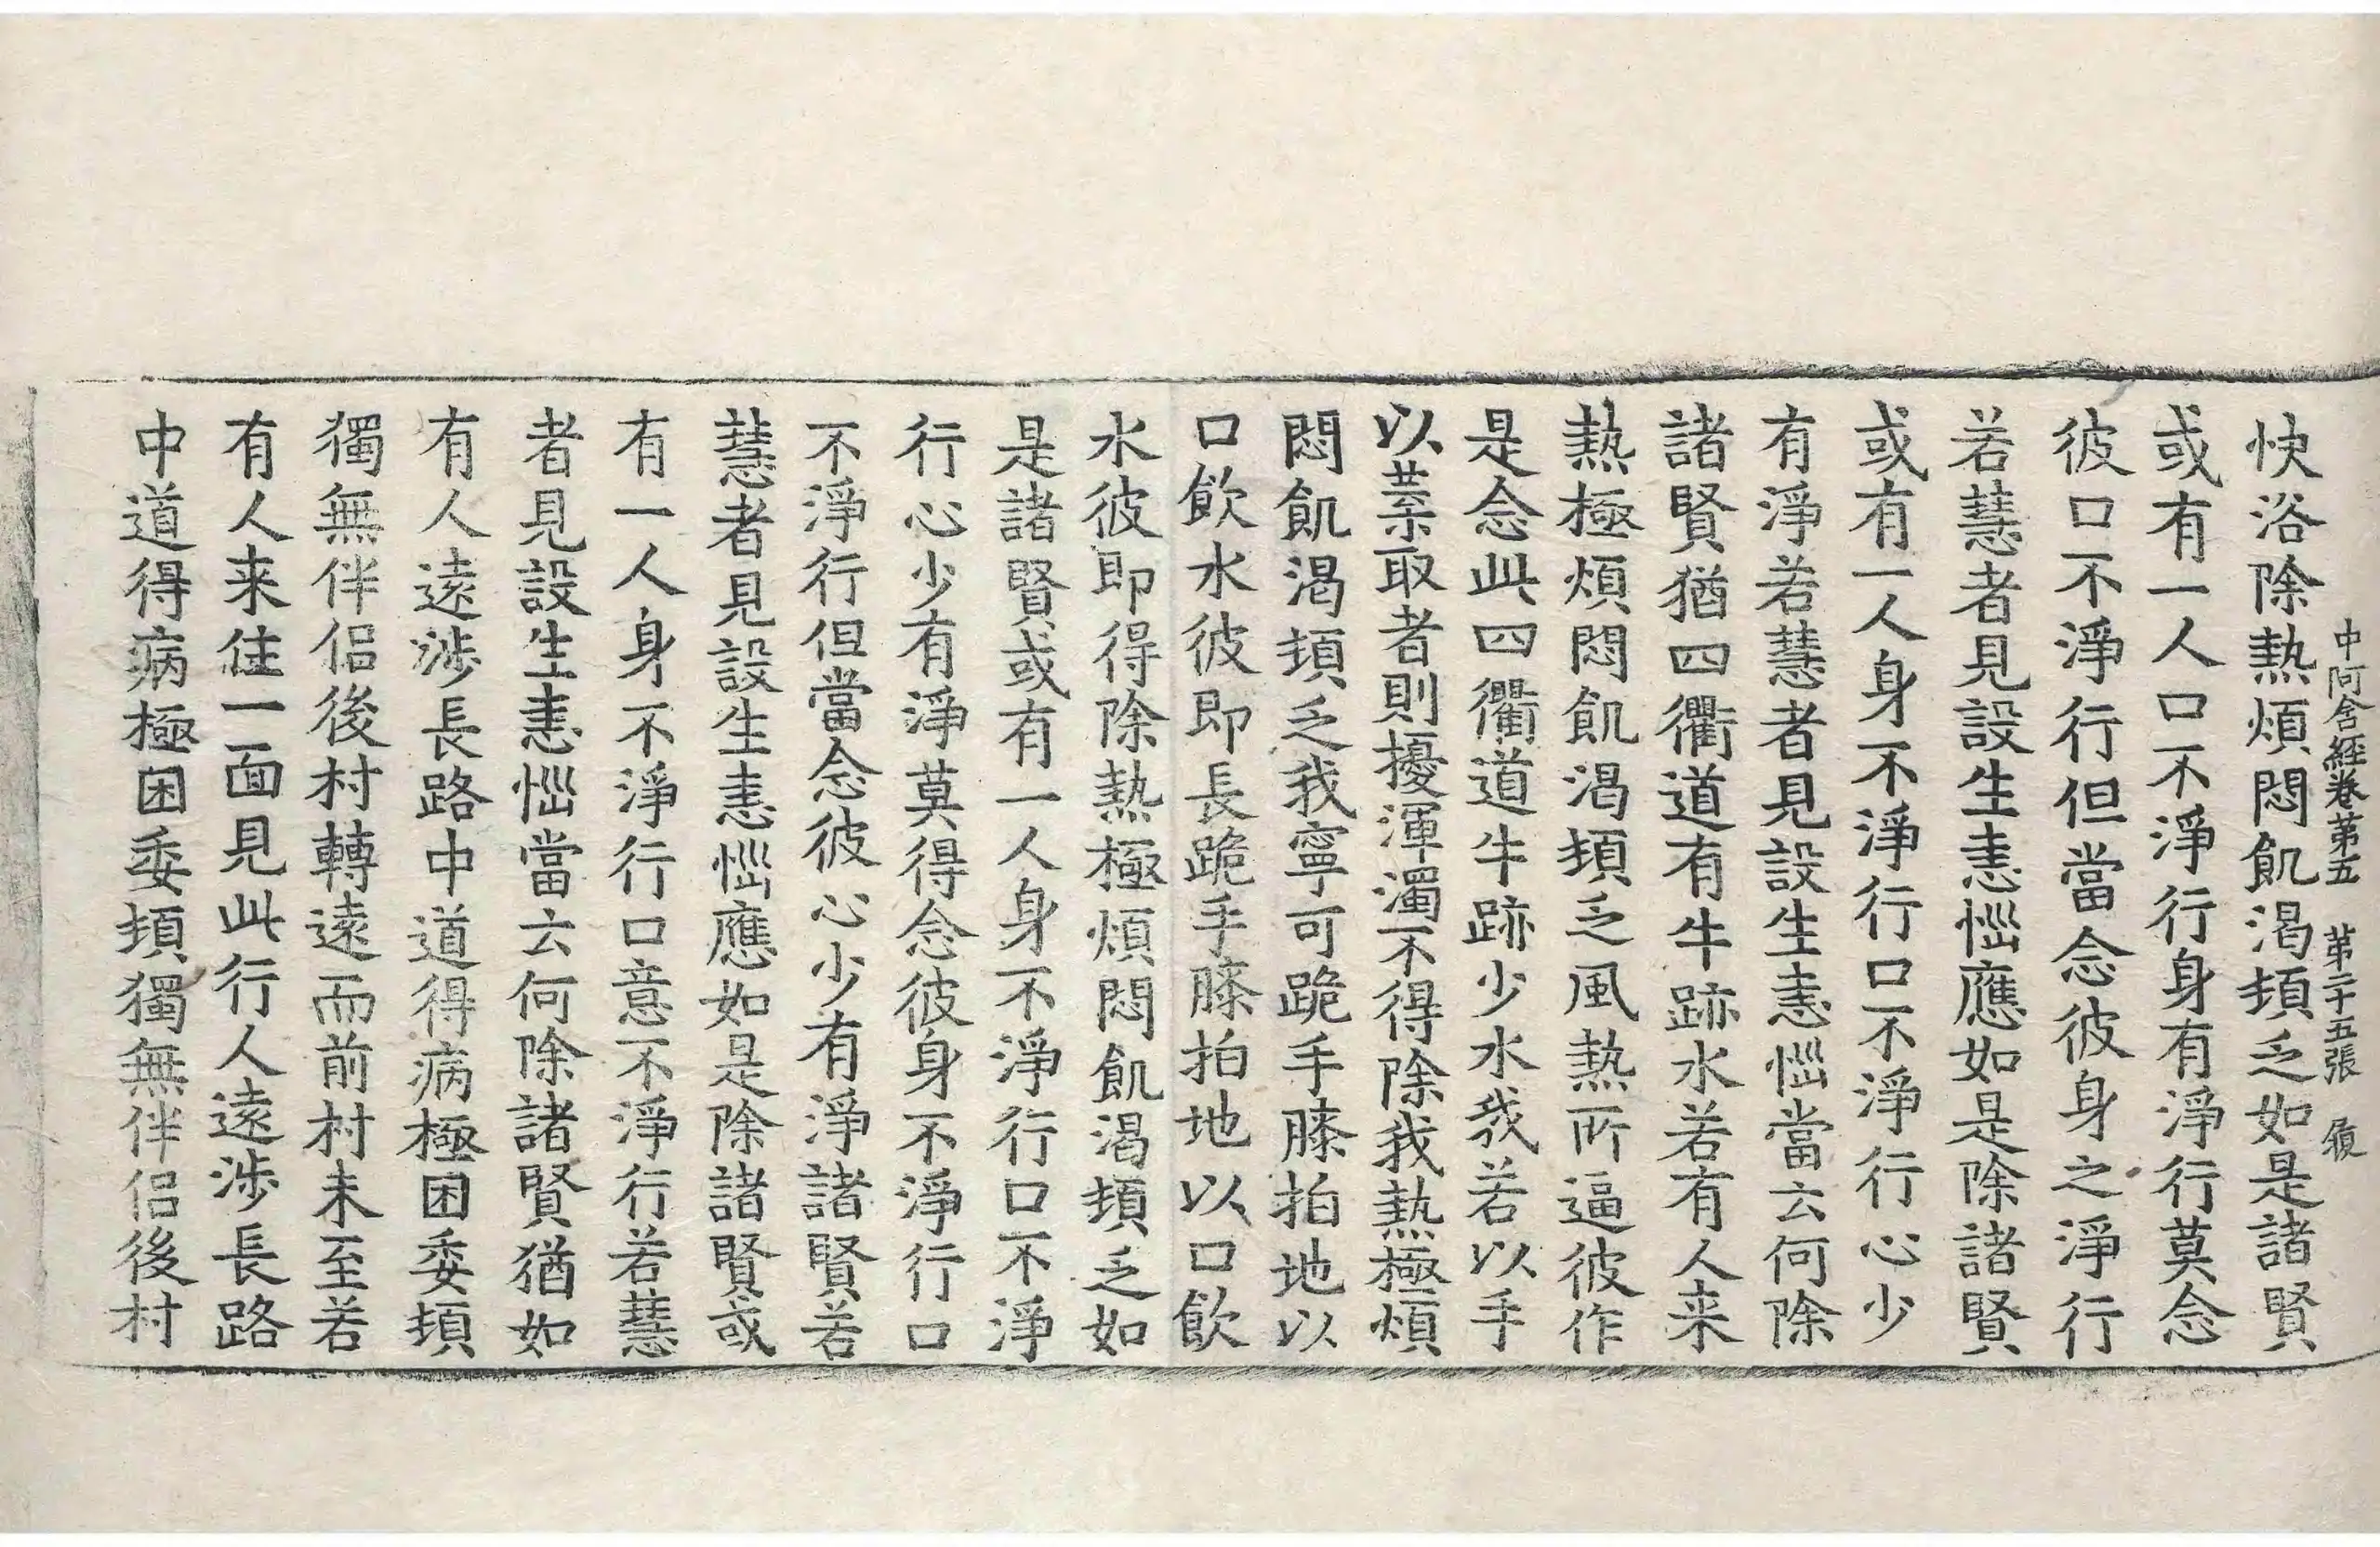 中阿含經卷第五　第二十五張　履
快浴除熱煩悶飢渴頓乏如是諸賢
或有一人口不淨行身有淨行莫念
彼口不淨行但當念彼身之淨行
若慧者見設生恚惱應如是除諸賢
或有一人身不淨行口不淨行心少
有淨若慧者見設生恚惱當云何除
諸賢猶四衢道有牛跡水若有人来
熱極煩悶飢渴頓乏風熱所逼彼作
是念此四衢道牛跡少水我若以手
以葉取者則擾渾濁不得除我熱極煩
悶飢渴頓乏我寧可跪手膝拍地以
口飲水彼即長跪手膝拍地以口飲
水彼即得除熱極煩悶飢渴頓乏如
是諸賢或有一人身不淨行口不淨
行心少有淨莫得念彼身不淨行口
不淨行但當念彼心少有淨諸賢若
慧者見設生恚惱應如是除諸賢或
有一人身不淨行口意不淨行若慧
者見設生恚惱當云何除諸賢猶如
有人遠涉長路中道得病極困委頓
獨無伴侶後村轉遠而前村未至若
有人来住一面見此行人遠涉長路
中道得病極困委頓獨無伴侶後村